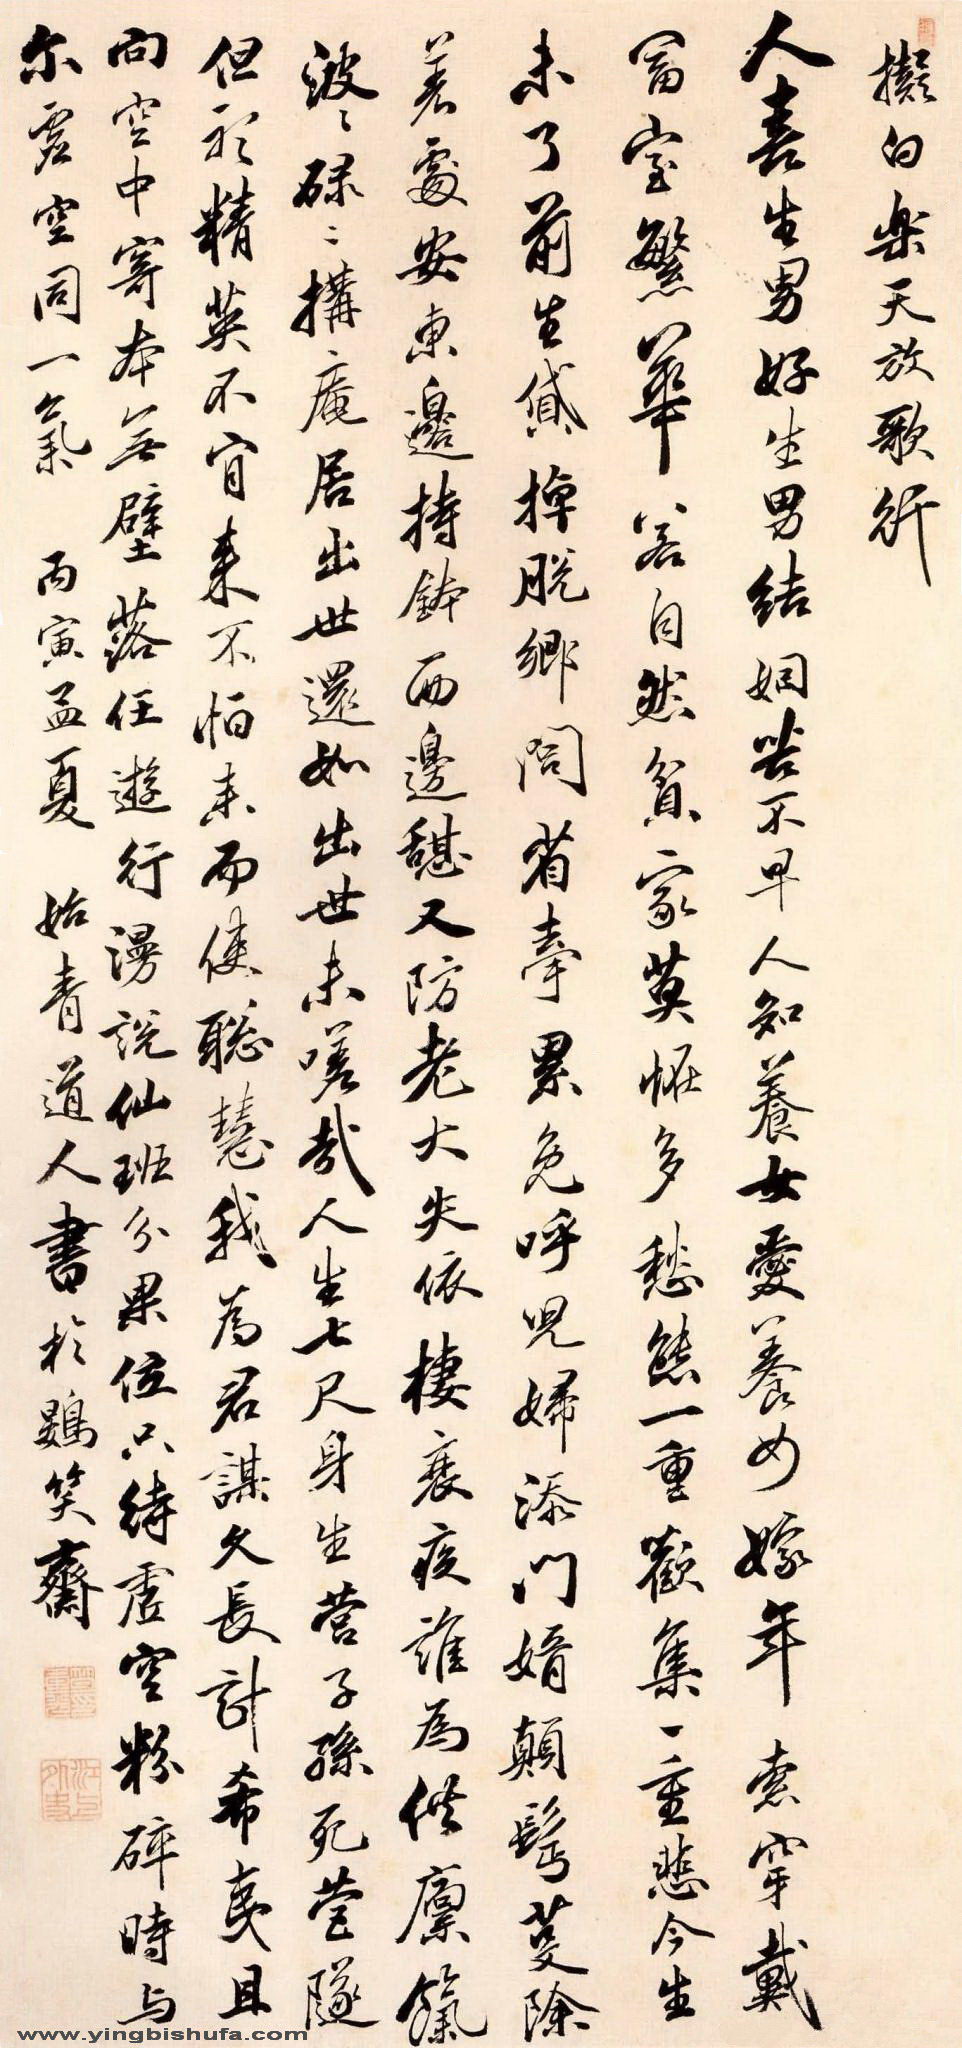 擬白樂天放歌行
人喜生男好生男結姻苦不早人知養女愛養女嫁年索穿戴
富室繁華若自然貧家莫恠多愁態一重歡集一重悲今生
未了前生貸掉脫鄉問省牽累免呼兒婦添門婿顛髩蔓除
著處安東邊持鉢西邊憩又防老大失依棲衰疾誰為供廩餼
波波碌碌搆庵居出世還如出世未嗟哉人生七尺身生營子孫死營隧
但祈精英不宜来不怕未而使聰慧我為君謀久長計希夷且
向空中寄本無壁落任遊行漫說仙班分果位只待虛空粉碎時与
尔虛空同一氣 丙寅孟夏 始青道人書於鷃笑齋
www.yingbishufa.com